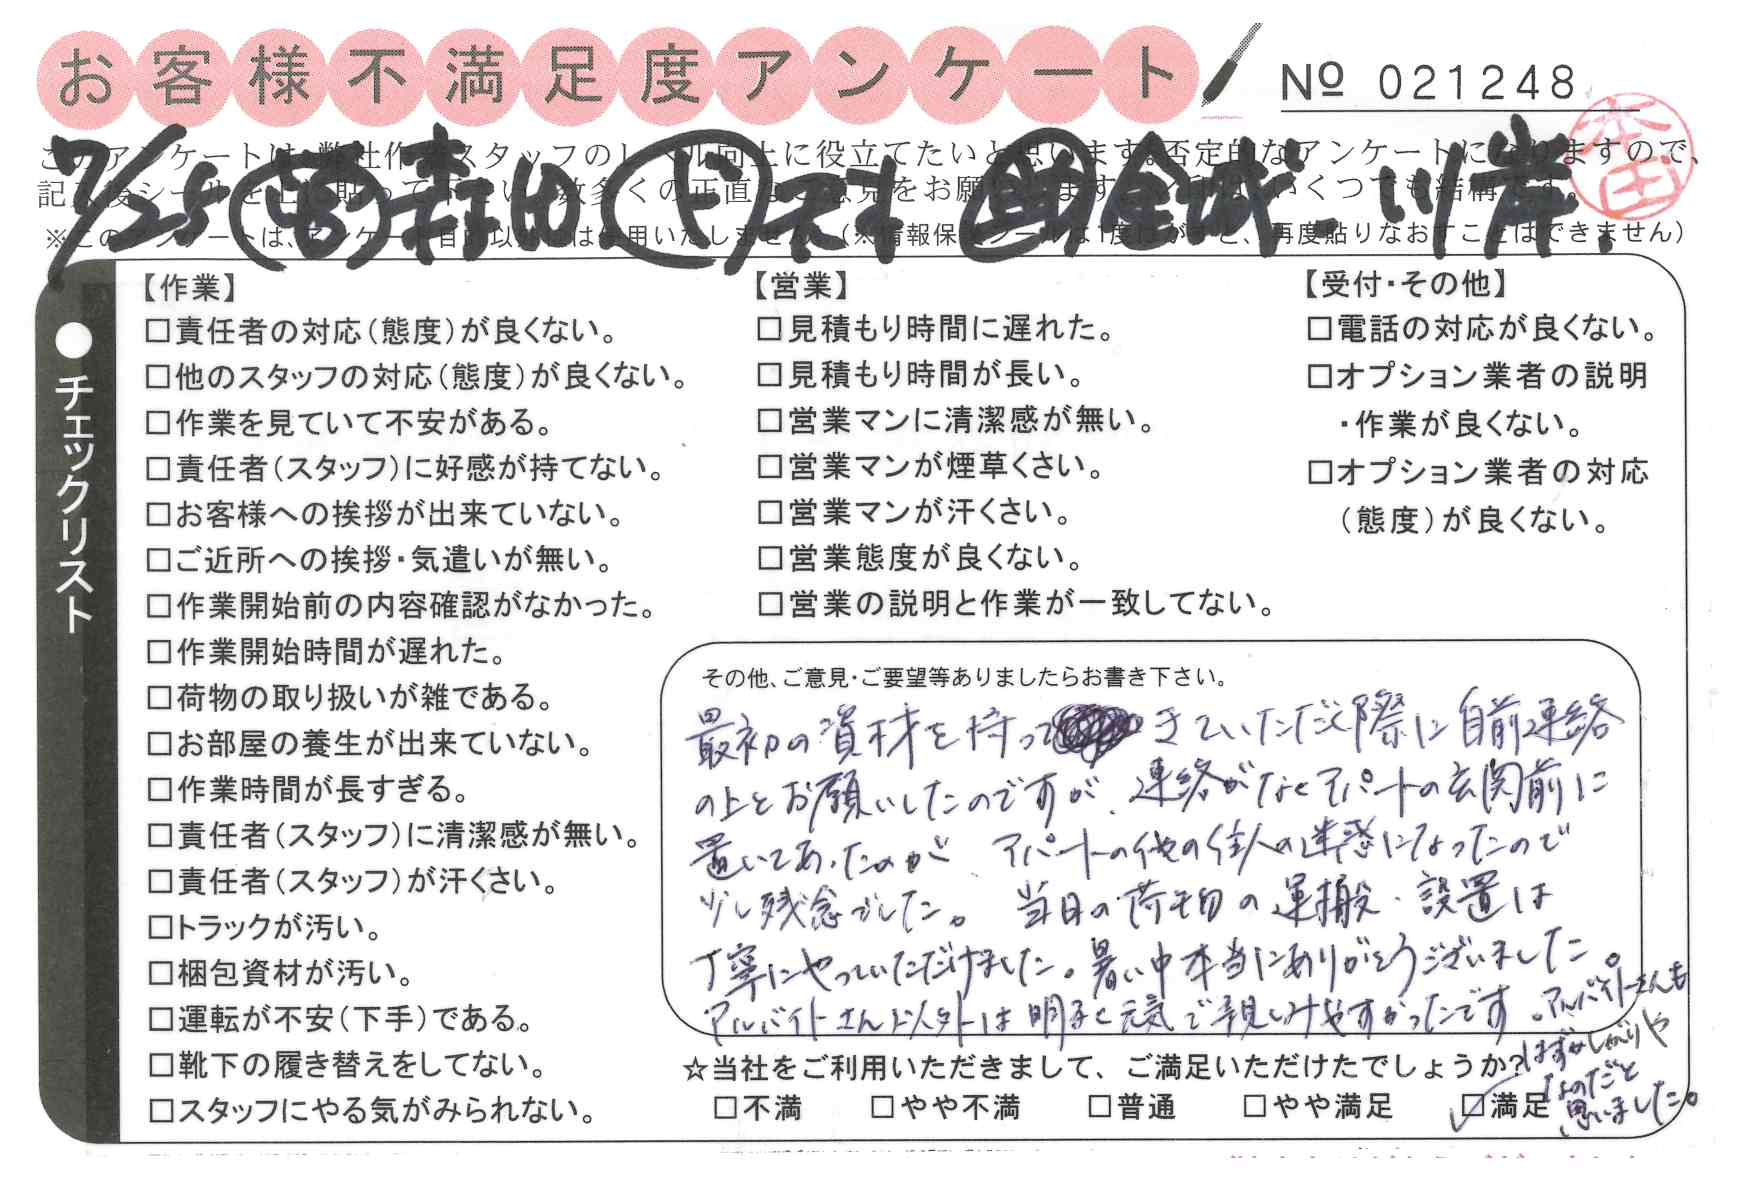 お客様不満足度アンケート
No 021248
本田
このアンケートは、弊社作業スタッフのレベル向上に役立てたいと思います。否定的なアンケートになりますので、
記入後シールを上に貼って下さい。数多くの正直なご意見をお願いします。
※このアンケートは、アンケート目的以外には使用いたしません。(※情報保護シールは1度はがすと、再度貼りなおすことはできません)
7/25 営 ド
●チェックリスト
【作業】
□責任者の対応(態度)が良くない。
□他のスタッフの対応(態度)が良くない。
□作業を見ていて不安がある。
□責任者(スタッフ)に好感が持てない。
□お客様への挨拶が出来ていない。
□ご近所への挨拶・気遣いが無い。
□作業開始前の内容確認がなかった。
□作業開始時間が遅れた。
□荷物の取り扱いが雑である。
□お部屋の養生が出来ていない。
□作業時間が長すぎる。
□責任者(スタッフ)に清潔感が無い。
□責任者(スタッフ)が汗くさい。
□トラックが汚い。
□梱包資材が汚い。
□運転が不安(下手)である。
□靴下の履き替えをしてない。
□スタッフにやる気がみられない。
【営業】
□見積もり時間に遅れた。
□見積もり時間が長い。
□営業マンに清潔感が無い。
□営業マンが煙草くさい。
□営業マンが汗くさい。
□営業態度が良くない。
□営業の説明と作業が一致してない。
【受付・その他】
□電話の対応が良くない。
□オプション業者の説明
・作業が良くない。
□オプション業者の対応
(態度)が良くない。
その他、ご意見・ご要望等ありましたらお書き下さい。
最初の資材を持って きていただく際に自前連絡
の上とお願いしたのですが、連絡がなくアパートの玄関前に
置いてあったのが アパートの他の住人の迷惑になったので
少し残念でした。 当日の荷物の運搬・設置は
丁寧にやっていただけました。暑い中本当にありがとうございました。
アルバイトさん以外は明るく元気で親しみやすかったです。アルバイトさんも
はずかしがりや
なのだと
思いました。
☆当社をご利用いただきまして、ご満足いただけたでしょうか?
□不満 □やや不満 □普通 □やや満足 ☑満足